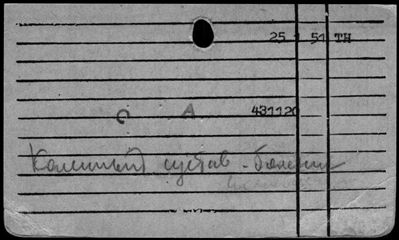 25 1 51 TH
C A 431120
Коленный сустав - болезни